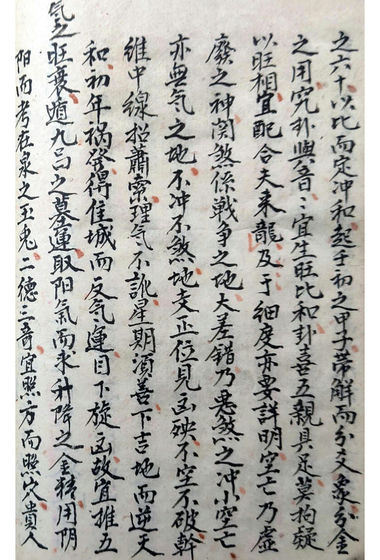 之六十以比而定冲和起于初之甲子带解而分爻象分金
之用究卦與音二宜生旺比和卦喜五親具足莫拘疑
以旺相宜配合夫来龍及于細度亦要詳明空亡乃虛
廢之神関煞係戦争之地大差錯乃悪煞之冲小空亡
亦無氣之地不冲不煞地支正位見凶殃不空不破幹
維中線招蕭索理气不訛星期須善下吉地而逆天
和初年禍發得佳城而反氣運目下旋凶故宜推五
气之旺衰遁九宫之墓運取陽氣而求升降之金精用阴
阳而考在泉之玉兎二德三奇宜照方而照穴貴人